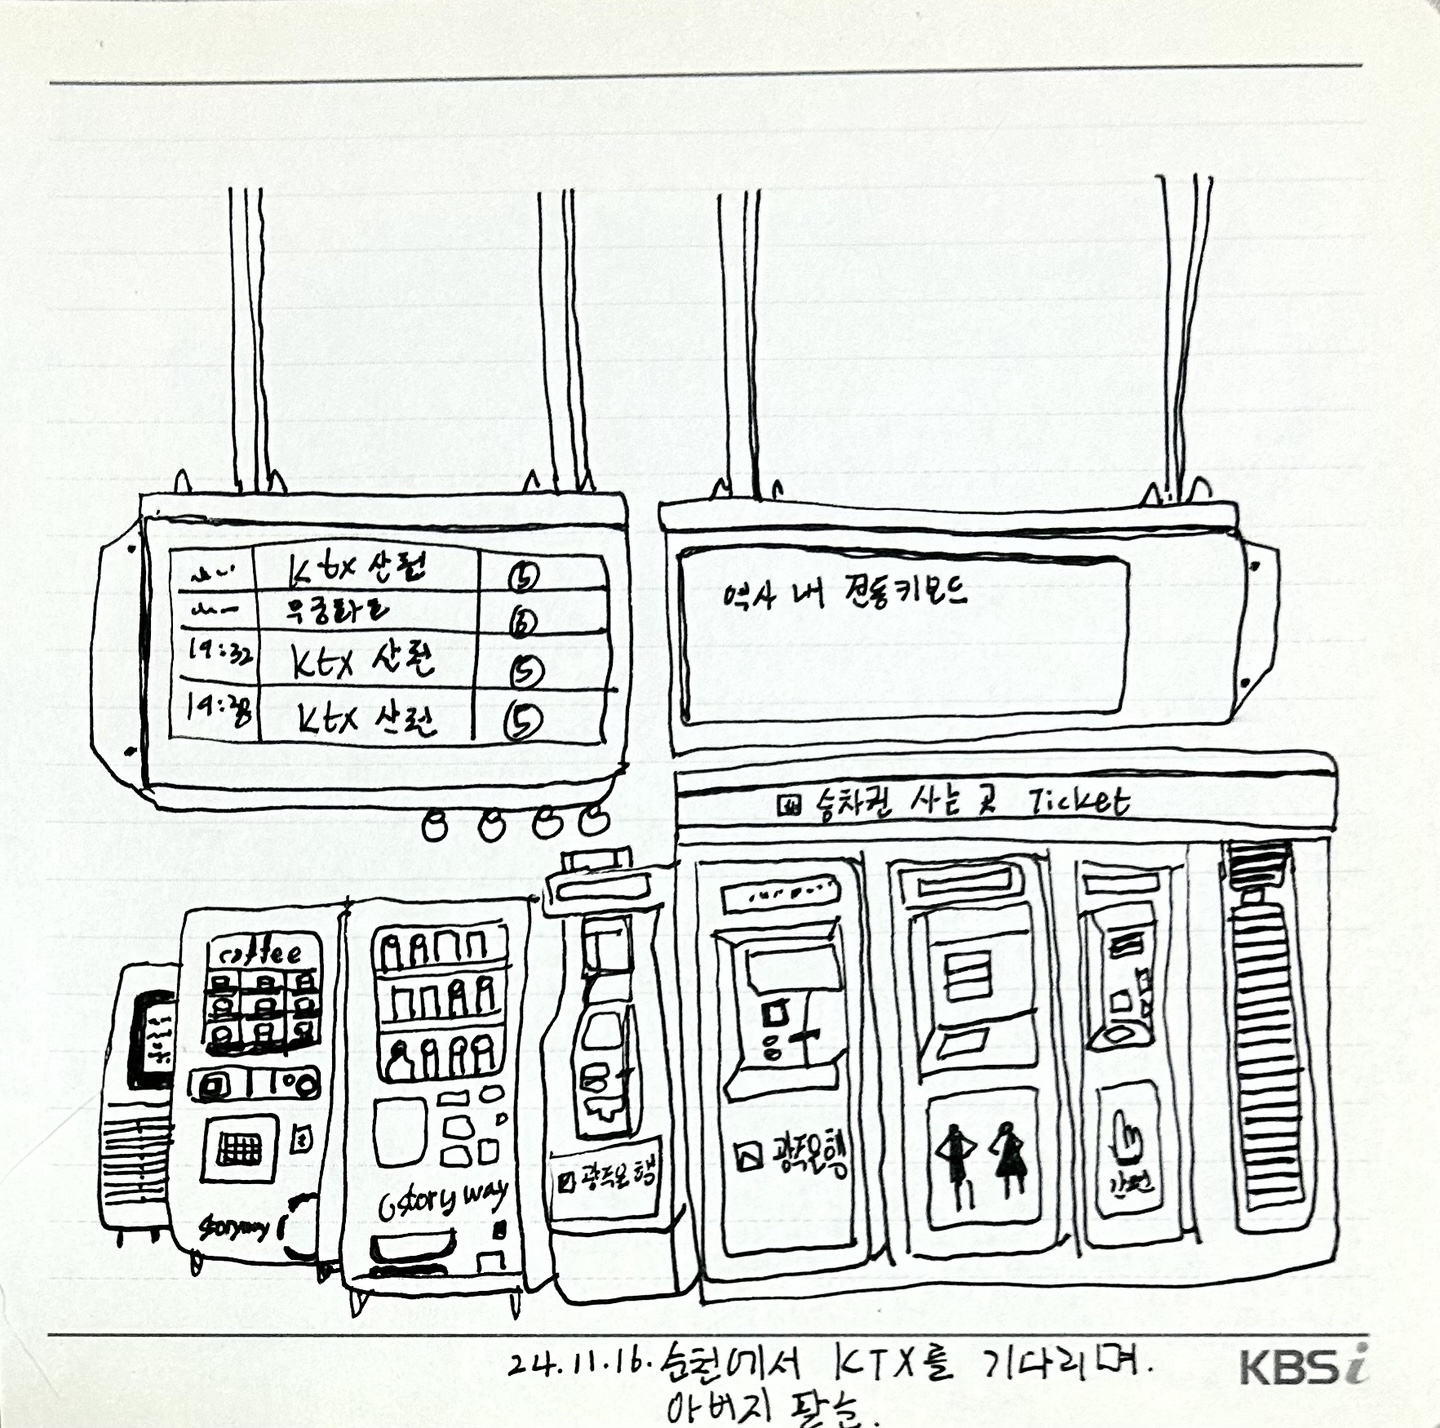 Ktx 산천 ⑤
무궁화호 ⑥
19:32 Ktx 산천 ⑤
Ktx 산천 ⑤
역사 내 전동키보드
승차권 사는 곳 Ticket
coffee
storyway
story way
광주은행
광주은행
간편
24.11.16. 순천에서 KTX를 기다리며.
아버지 팔순.
KBSi